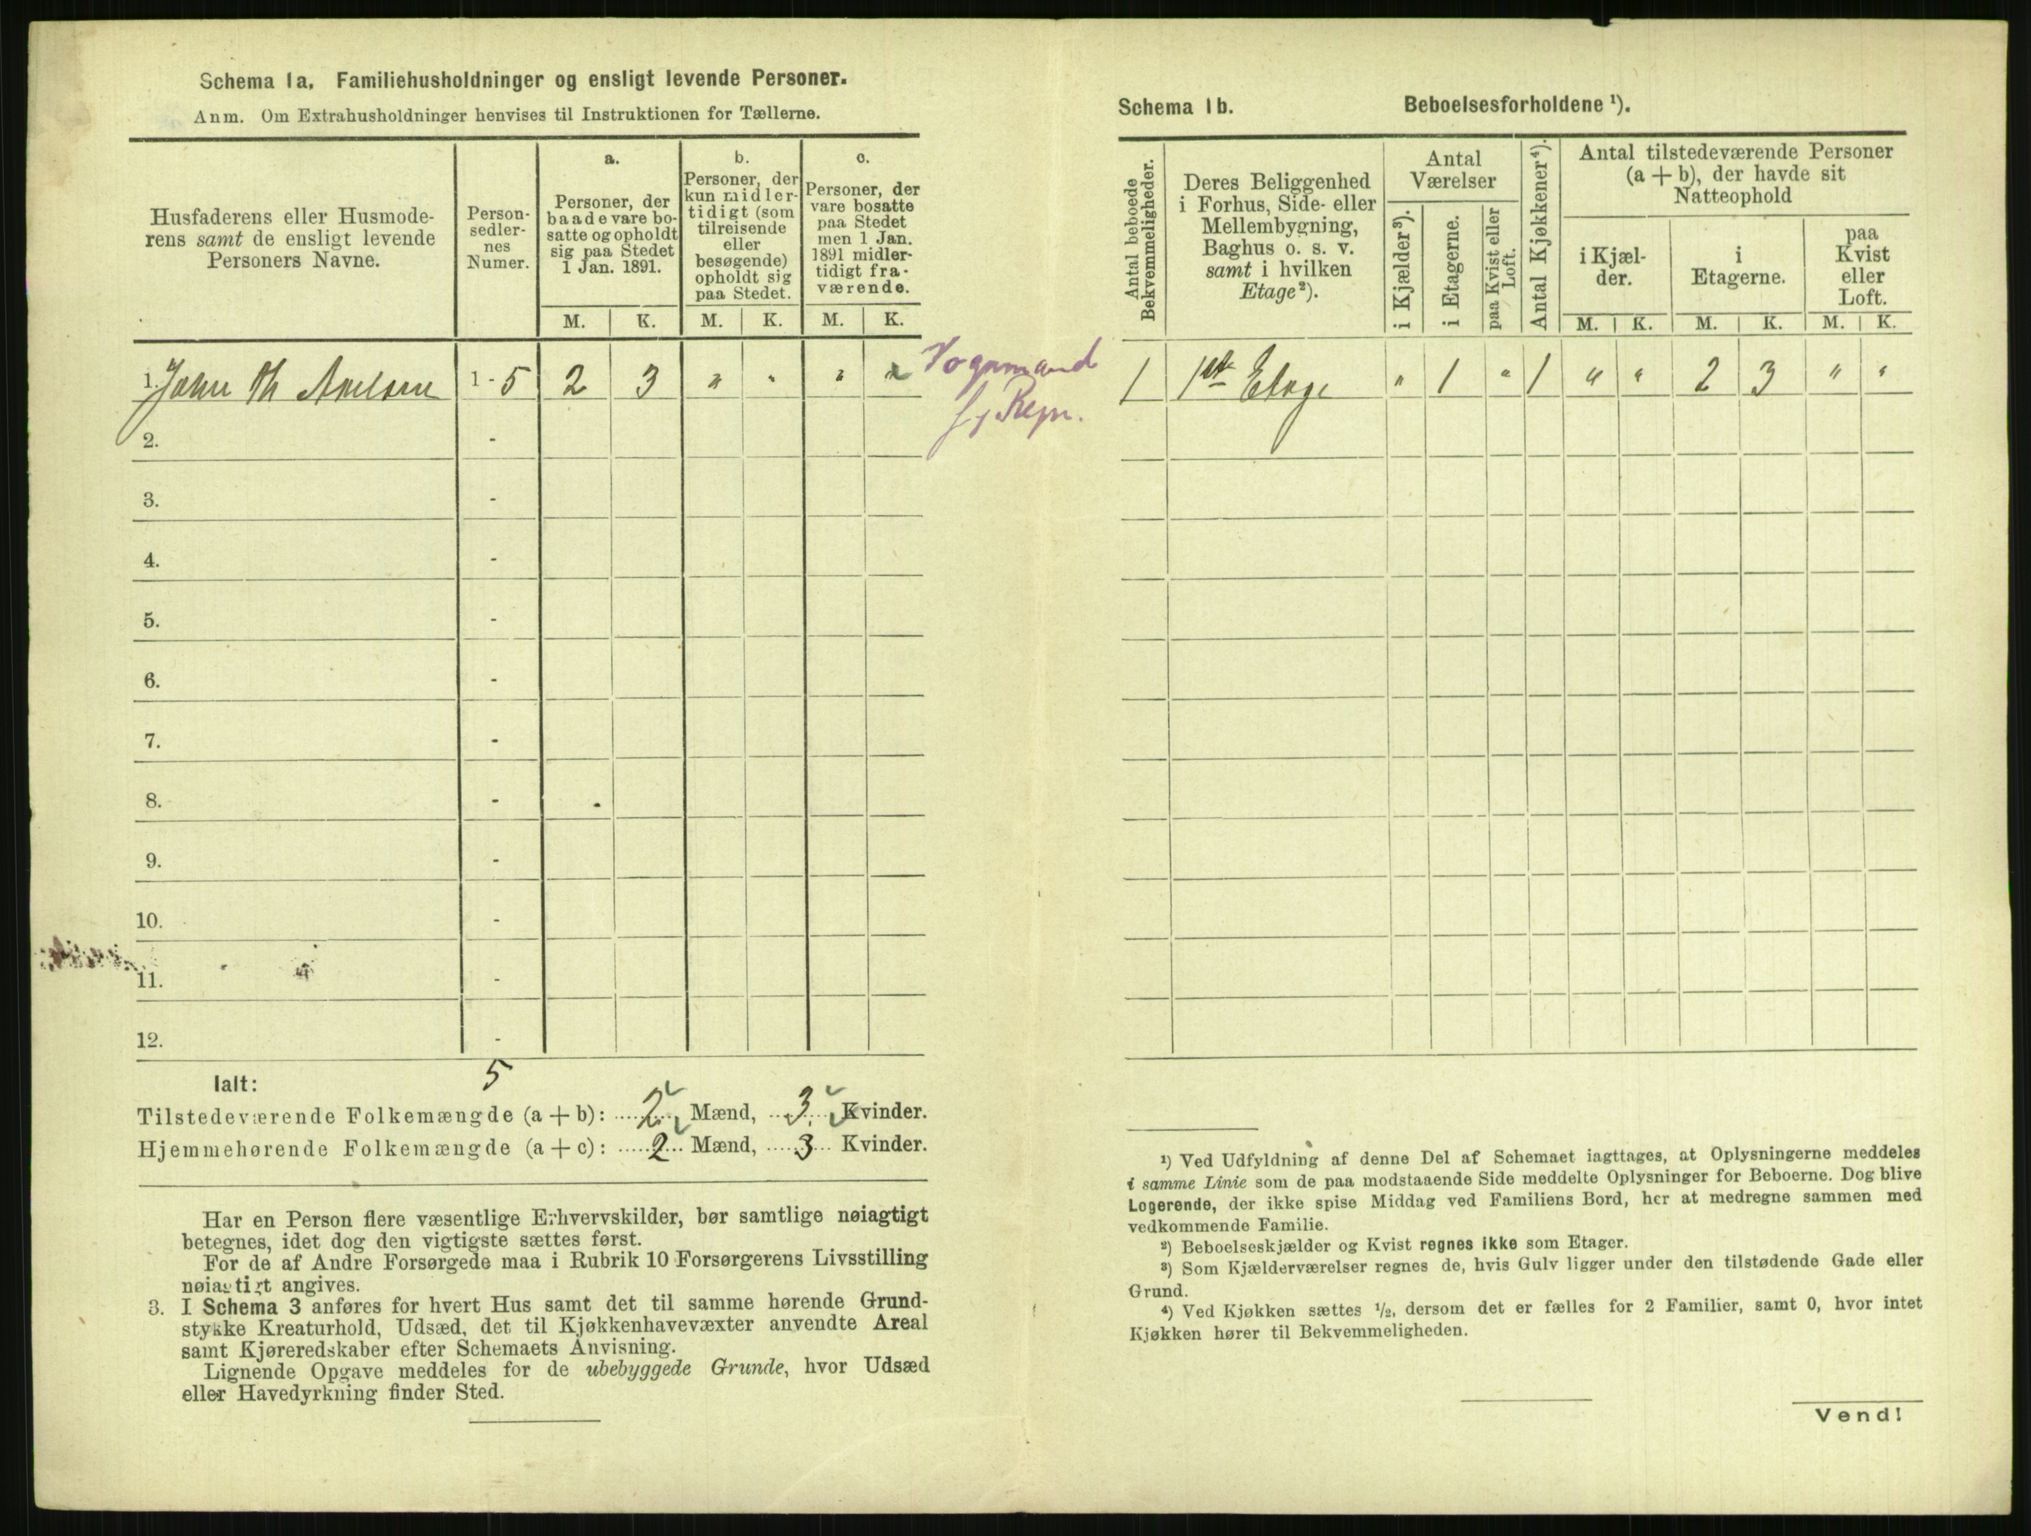 Schema 1a. Familiehusholdninger og ensligt levende Personer.
Anm. Om Extrahusholdninger henvises til Instruktionen for Tællerne.
Husfaderens eller Husmode-
rens samt de ensligt levende
Personers Navne.
Person-
sedler-
nes
Numer.
a.
Personer, der
baade vare bo-
satte og opholdt
sig paa Stedet
1 Jan. 1891.
b.
Personer, der
kun midler-
tidigt (som
tilreisende
eller
besøgende)
opholdt sig
paa Stedet.
c.
Personer, der
vare bosatte
paa Stedet
men 1 Jan.
1891 midler-
tidigt fra-
værende.
M. K. M. K. M. K.
1. John Th 1 - 5 2 3 " " " "
Vognmand
2. -
3. -
4. -
5. -
6. -
7. -
8. -
9. -
10. -
11. -
12. -
Ialt: 5
Tilstedeværende Folkemængde (a + b): 2 Mænd, 3 Kvinder.
Hjemmehørende Folkemængde (a + c): 2 Mænd, 3 Kvinder.
Har en Person flere væsentlige Erhvervskilder, bør samtlige nøiagtigt
betegnes, idet dog den vigtigste sættes først.
For de af Andre Forsørgede maa i Rubrik 10 Forsørgerens Livsstilling
nøiagtigt angives.
3. I Schema 3 anføres for hvert Hus samt det til samme hørende Grund-
stykke Kreaturhold, Udsæd, det til Kjøkkenhavevæxter anvendte Areal
samt Kjøreredskaber efter Schemaets Anvisning.
Lignende Opgave meddeles for de ubebyggede Grunde, hvor Udsæd
eller Havedyrkning finder Sted.
Schema 1b. Beboelsesforholdene ¹).
Antal beboede
Bekvemmeligheder.
Deres Beliggenhed
i Forhus, Side- eller
Mellembygning,
Baghus o. s. v.
samt i hvilken
Etage²).
Antal
Værelser
i Kjælder³).
i Etagerne.
paa Kvist eller
Loft.
Antal Kjøkkener⁴).
Antal tilstedeværende Personer
(a + b), der havde sit
Natteophold
i Kjæl-
der.
i
Etagerne.
paa
Kvist
eller
Loft.
M. K. M. K. M. K.
1 1ste Etage " 1 " 1 " " 2 3 " "
¹) Ved Udfyldning af denne Del af Schemaet iagttages, at Oplysningerne meddeles
i samme Linie som de paa modstaaende Side meddelte Oplysninger for Beboerne. Dog blive
Logerende, der ikke spise Middag ved Familiens Bord, her at medregne sammen med
vedkommende Familie.
²) Beboelseskjælder og Kvist regnes ikke som Etager.
³) Som Kjælderværelser regnes de, hvis Gulv ligger under den tilstødende Gade eller
Grund.
⁴) Ved Kjøkken sættes ½, dersom det er fælles for 2 Familier, samt 0, hvor intet
Kjøkken hører til Bekvemmeligheden.
Vend!